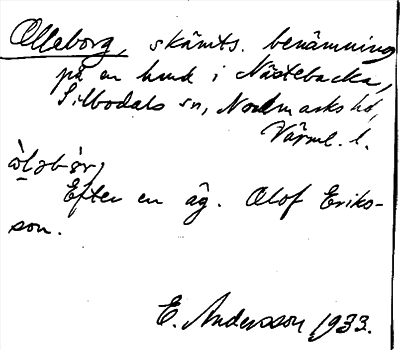 Olleborg, skämts. benämning
på en hmd i Nästebacka,
Silbodals sn, Nordmarks hd,
Värml. l.
Efter en äg. Olof Eriks-
son.
E. Andersson 1933.